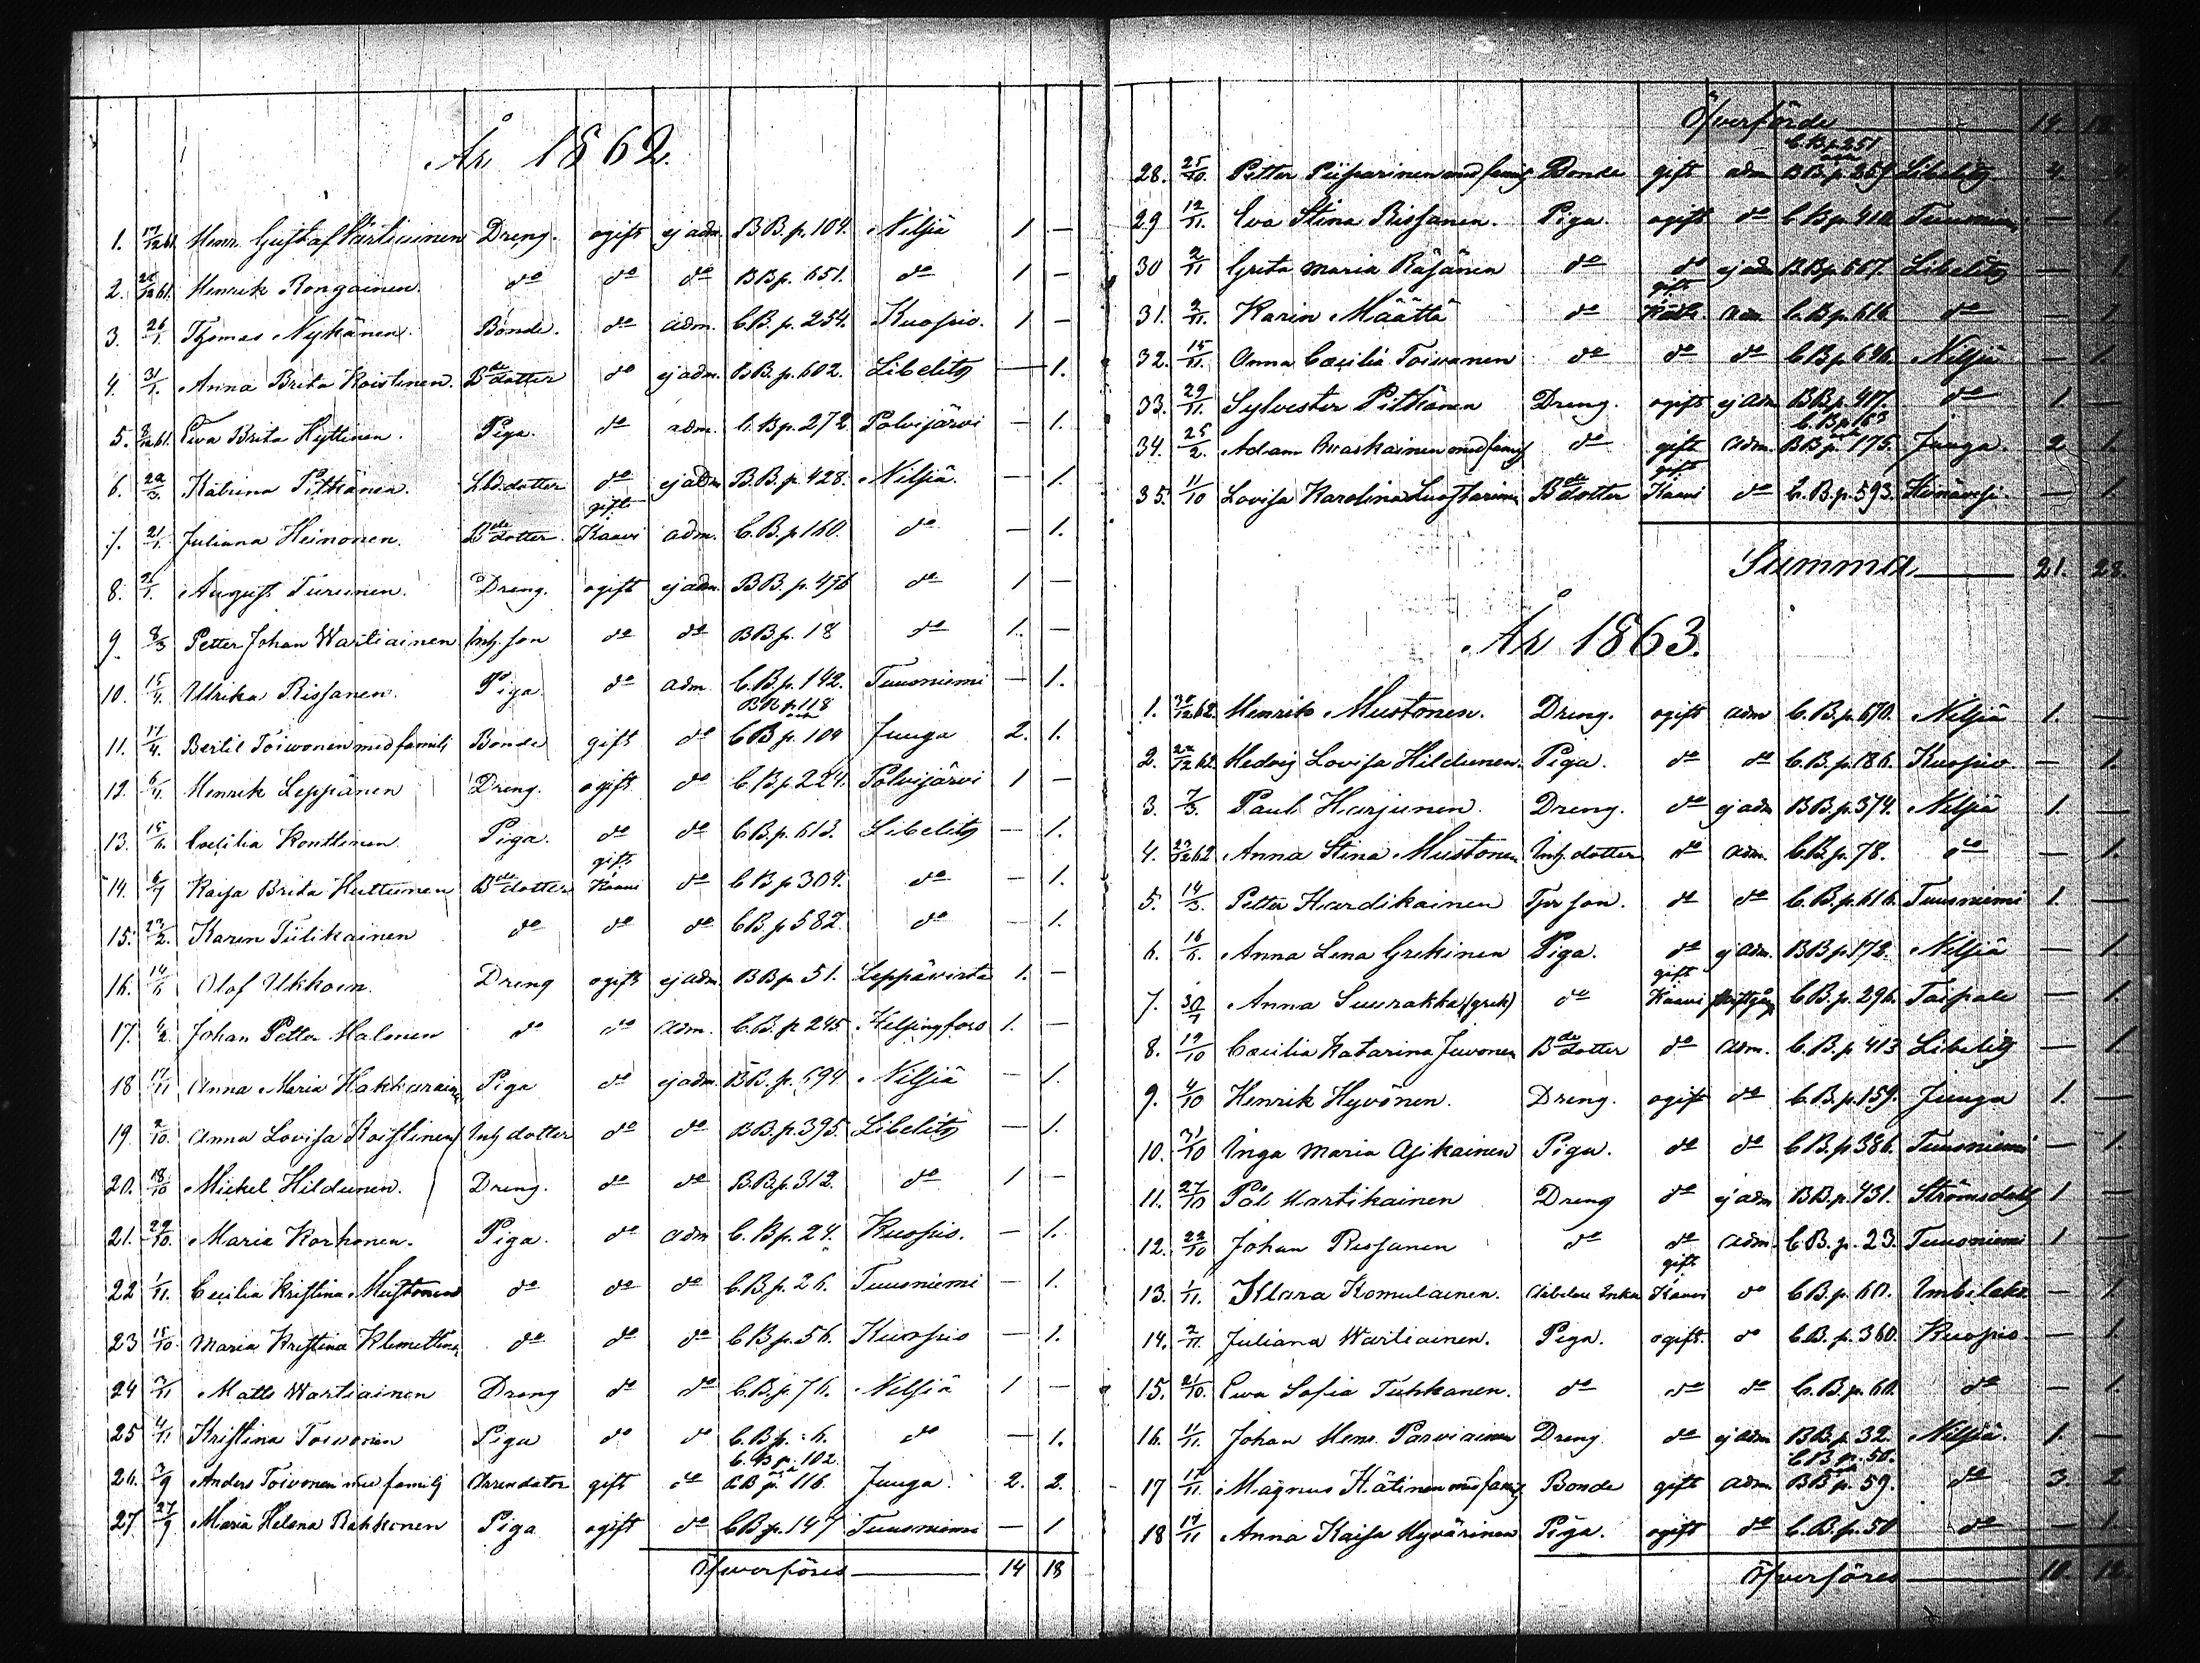 År 1862.
1. 17/12 61. Henr. Gustaf Partiainen Dreng. ogift ej adm. BB. p. 104. Nilsiä 1 —
2. 26/12 61. Henrik Rongainen. do do do BB p. 651. do 1 —
3. 26/1. Thomas Nykänen. Bonde. do adm. CB. p. 254. Kuopio. 1 —
4. 31/1. Anna Brita Koistinen. Bde dotter do ej adm. BB. p. 602. Libelitz — 1.
5. 8/12 61. Ewa Brita Hyttinen. Piga. do adm. C. B p. 272 Polvijärvi — 1.
6. 22/3. Katrina Pitkänen. Lbd. dotter do ej adm B.B. p. 428. Nilsiä. — 1.
7. 21/1. Juliana Heinonen. Bde dotter. gift Kaavi adm. C.B. p 160. do — 1.
8. 21/1. August Turunen. Dreng. ogift ej adm. BB. p. 456 do 1 —
9. 8/3 Petter Johan Wartiainen Inh. son do do BB p. 18 do 1. —
10. 15/4. Ulrika Rissanen. Piga do adm. C.B. p. 142. Tuusniemi — 1.
BB p. 118 och
11. 17/4. Bertil Toiwonen med familj Bonde gift do CB p. 104 Juuga 2. 1.
12. 6/4. Henrik Leppänen Dreng. ogift do C. B p 224. Polvijärvi 1 —
13. 15/6. Cecilia Konttinen Piga. do do CB p. 613. Libelitz — 1.
14. 6/7 Kaisa Brita Huttunen Bde dotter gift Kaavi do CB p 304. do — 1.
15. 23/2. Karin Tulikainen do do do CB p 582. do — 1.
16. 14/6 Olof Ukkoin. Dreng ogift ej adm BB p 51. Leppävirta 1. —
17. 6/2. Johan Petter Halonen do do adm. C.B. p 245 Helsingfors 1. —
18 17/11 Anna Maria Hakkarain Piga do ej adm. BB. p. 694. Nilsiä — 1.
19. 2/10. Anna Lovisa Koistinen Inh dotter do do BB. p. 395. Libelitz — 1.
20. 18/10 Mickel Hildunen. Dreng. do do B.B. p. 312. do 1 —
21. 29/10. Maria Korhonen. Piga. do adm C. B p. 24. Kuopio. — 1.
22 1/11. Cecilia Kristina Mustonen do do do C.B. p. 26. Tuusniemi — 1.
23 15/10 Maria Kristina Klemettin do do do C B p. 56. Kuopio — 1.
24 2/11 Matts Wartiainen Dreng do do C.B. p. 76. Nilsiä 1 —
25 4/11 Kristina Toivonen Piga do do C.B p. 6. do — 1.
C. B p. 102. och
26. 2/9 Anders Toivonen med familj Arrendator gift do BB p. 116. Juuga. 2. 2.
27. 27/9 Maria Helena Rakkonen Piga ogift do CB p. 147 Tuusniemi — 1
Öfverföres — 14 18
Öfverförde — 14. 18.
C. B p 251 och
28. 25/10. Petter Piiparinen med familj Bonde gift adm BB p. 359 Libelitz 4. 4
29 12/11. Eva Stina Rissanen. Piga. ogift do C B p. 410. Tuusniemi — 1.
30 2/11 Greta Maria Räsänen do do ej adm BB p 667. Libelitz — 1.
31. 2/11. Karin Määttä do gift Kaavi adm C. B p. 616 do — 1.
32. 15/11. Anna Caecilia Toivanen do do do C B p 696. Nilsiä — 1.
33. 29/11. Sylvester Pitkänen Dreng. ogift ej adm BB p. 417. do 1. —
C. B p 163 och
34. 25/2. Adam Kraskainen med familj do gift adm. BB p. 175. Juuga. 2 1.
35. 11/10 Lovisa Karolina Luostarinen Bde dotter gift Kaavi do C. B. p. 593. Heinävesi. — 1.
Summa — 21. 28.
År 1863.
1. 30/12 62. Henrik Mustonen. Dreng. ogift adm C. B. p. 670. Nilsiä 1. —
2. 22/12 62. Hedvig Lovisa Hildunen. Piga. do do C. B. p. 186. Kuopio — 1.
3. 7/3. Paul Harjunen. Dreng. do ej adm BB p. 374. Nilsiä 1. —
4. 23/12 62 Anna Stina Mustonen Inh. dotter do adm. C B. p. 78. do — 1.
5. 14/3. Petter Hardikainen Tpr son. do do C. B. p. 616. Tuusniemi 1. —
6. 16/6. Anna Lena Grekinen Piga. do ej adm. BB p. 172. Nilsiä — 1
7. 30/7 Anna Suurakka (grek) do gift Kaavi C B. p. 296. Taipale — 1
8. 19/10 Caecilia Katarina Juvonen Bde dotter do adm. C. B. p 413 Libelitz — 1
9. 4/10 Henrik Hyvönen. Dreng. ogift do C. B. p. 159. Juuga 1. —
10. 31/10 Inga Maria Asikainen Piga. do do C B. p 386. Tuusniemi — 1.
11. 27/10 Pål Martikainen Dreng do ej adm BB. p. 431. Strömsdahl 1. —
12. 22/10 Johan Rissanen do do adm. C. B. p. 23. Tuusniemi 1 —
13. 1/11. Klara Komulainen. Arbetare Enka gift Kaavi do C B. p. 60. Imbilaks — 1
14. 2/11. Juliana Wartiainen. Piga. ogift. do C B. p. 360. Kuopio — 1.
15. 21/10. Ewa Sofia Tuhkanen. do do do C. B. p. 60. do — 1.
16. 11/11. Johan Henr. Parviainen Dreng. do ej adm BB. p. 32. Nilsiä. 1. —
C B p. 50. och
17 17/11. Magnus Hätinen med familj Bonde gift adm. BB p. 59. do 3. 2
18 17/11 Anna Kaisa Hyvärinen Piga. ogift do C. B. p. 50 do — 1
Öfverföres — 10. 12